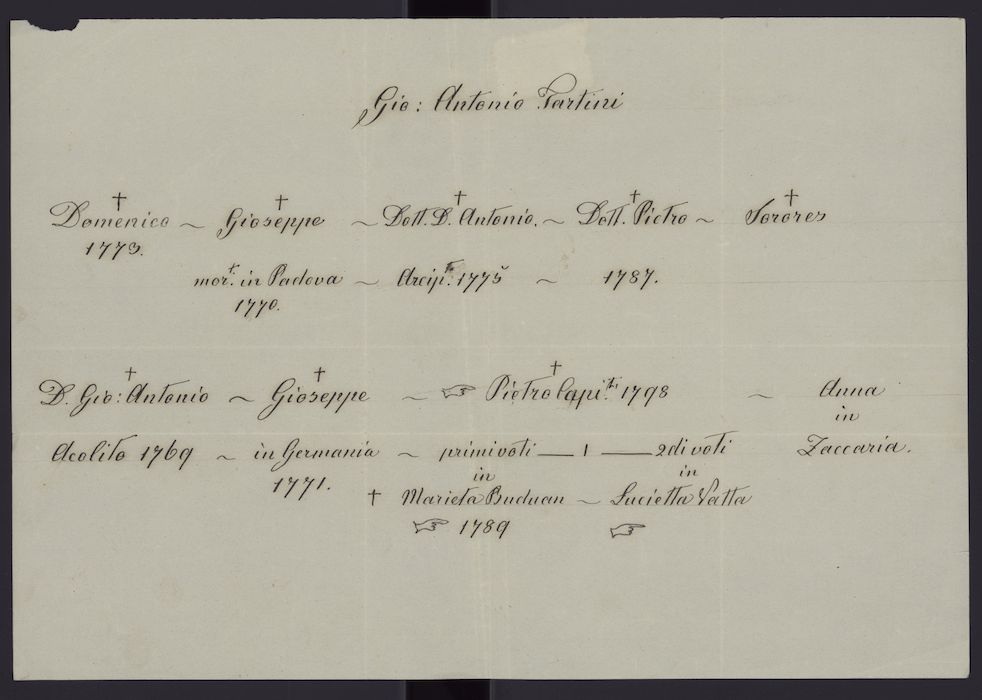 Gio: Antonio Tartini
† † † † †
Domenico ~ Gioseppe ~ Dott. D. Antonio. ~ Dott. Pietro ~ Sorores
1773.
mor.t in Padova ~ Arcip.te 1775 ~ 1787.
1770.
† † †
D. Gio: Antonio ~ Gioseppe ~ ☞ Pietro Capi.tn 1798 ~ Anna
in
Acolito 1769 ~ in Germania ~ primi voti — 1 — 2di voti Zaccaria.
1771. in in
† Marieta Buduan ~ Lucietta Vatta
☞ 1789 ☞